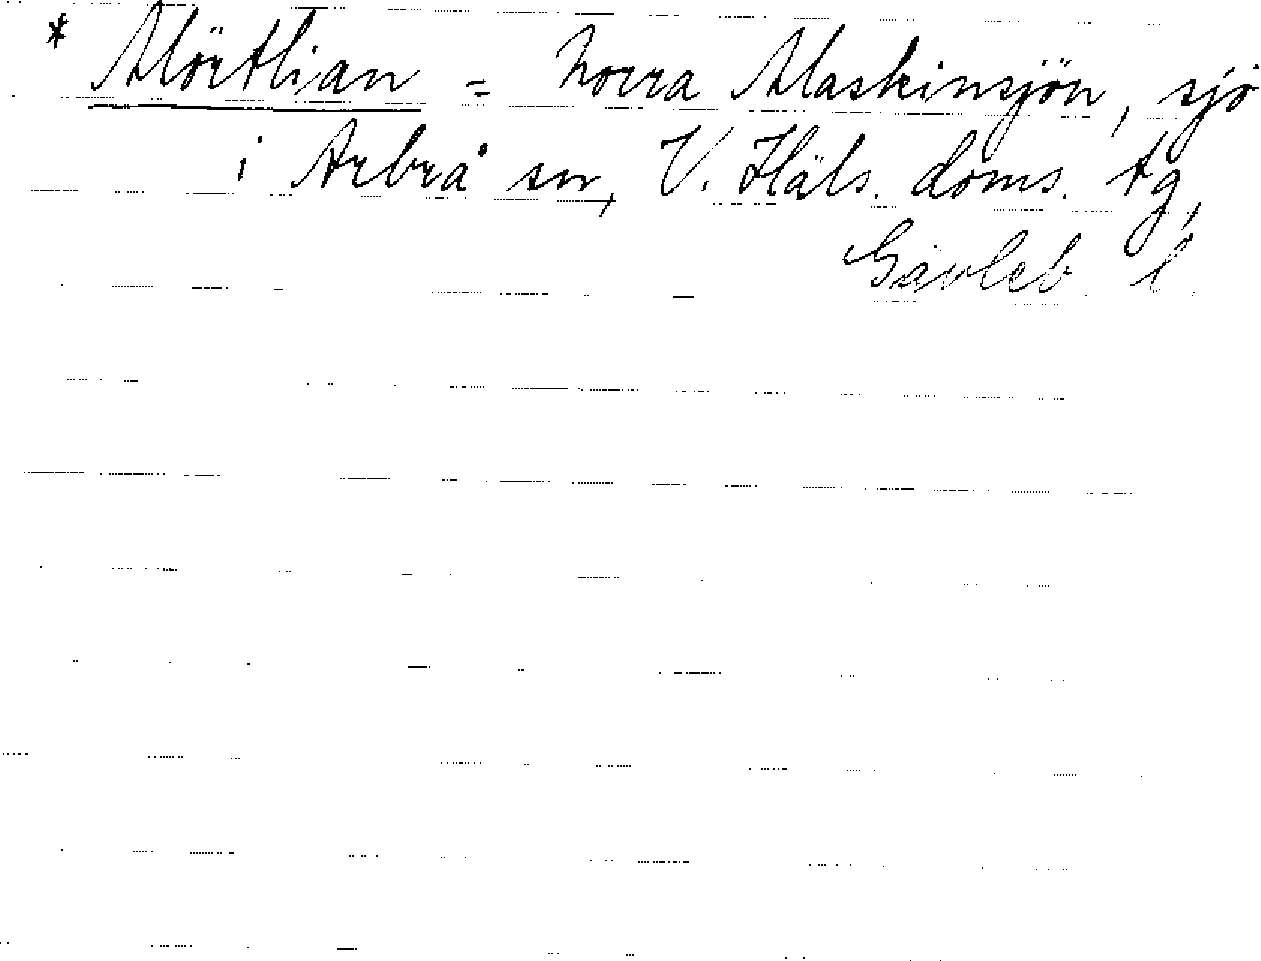 * Mörtlian = Norra Maskinsjön, sjö
i Arbrå sn, V. Häls. doms. tg,
Gävleb l.